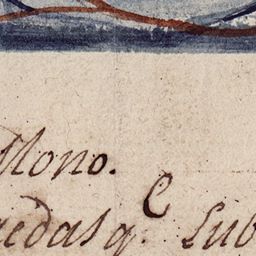 Mono.
redas q.e Sub